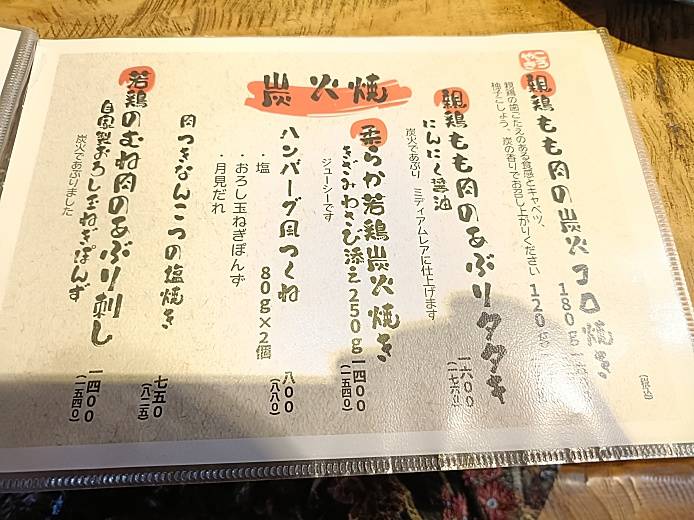 炭火焼
親鶏もも肉の炭火コロ焼き
親鶏の歯ごたえのある食感とキャベツ、
柚子こしょう、炭の香りでお召し上がりください
180g
120g
(税込)
親鶏もも肉のあぶりタタキ
にんにく醤油
炭火であぶり ミディアムレアに仕上げます
一六〇〇
(一七六〇)
柔らか若鶏炭火焼き
きざみわさび添え250g
ジューシーです
一四〇〇
(一五四〇)
ハンバーグ風つくね
80g×2個
・塩
・おろし玉ねぎぽんず
・月見だれ
八〇〇
(八八〇)
肉つきなんこつの塩焼き
七五〇
(八二五)
若鶏のむね肉のあぶり刺し
自家製おろし玉ねぎぽんず
炭火であぶりました
一四〇〇
(一五四〇)